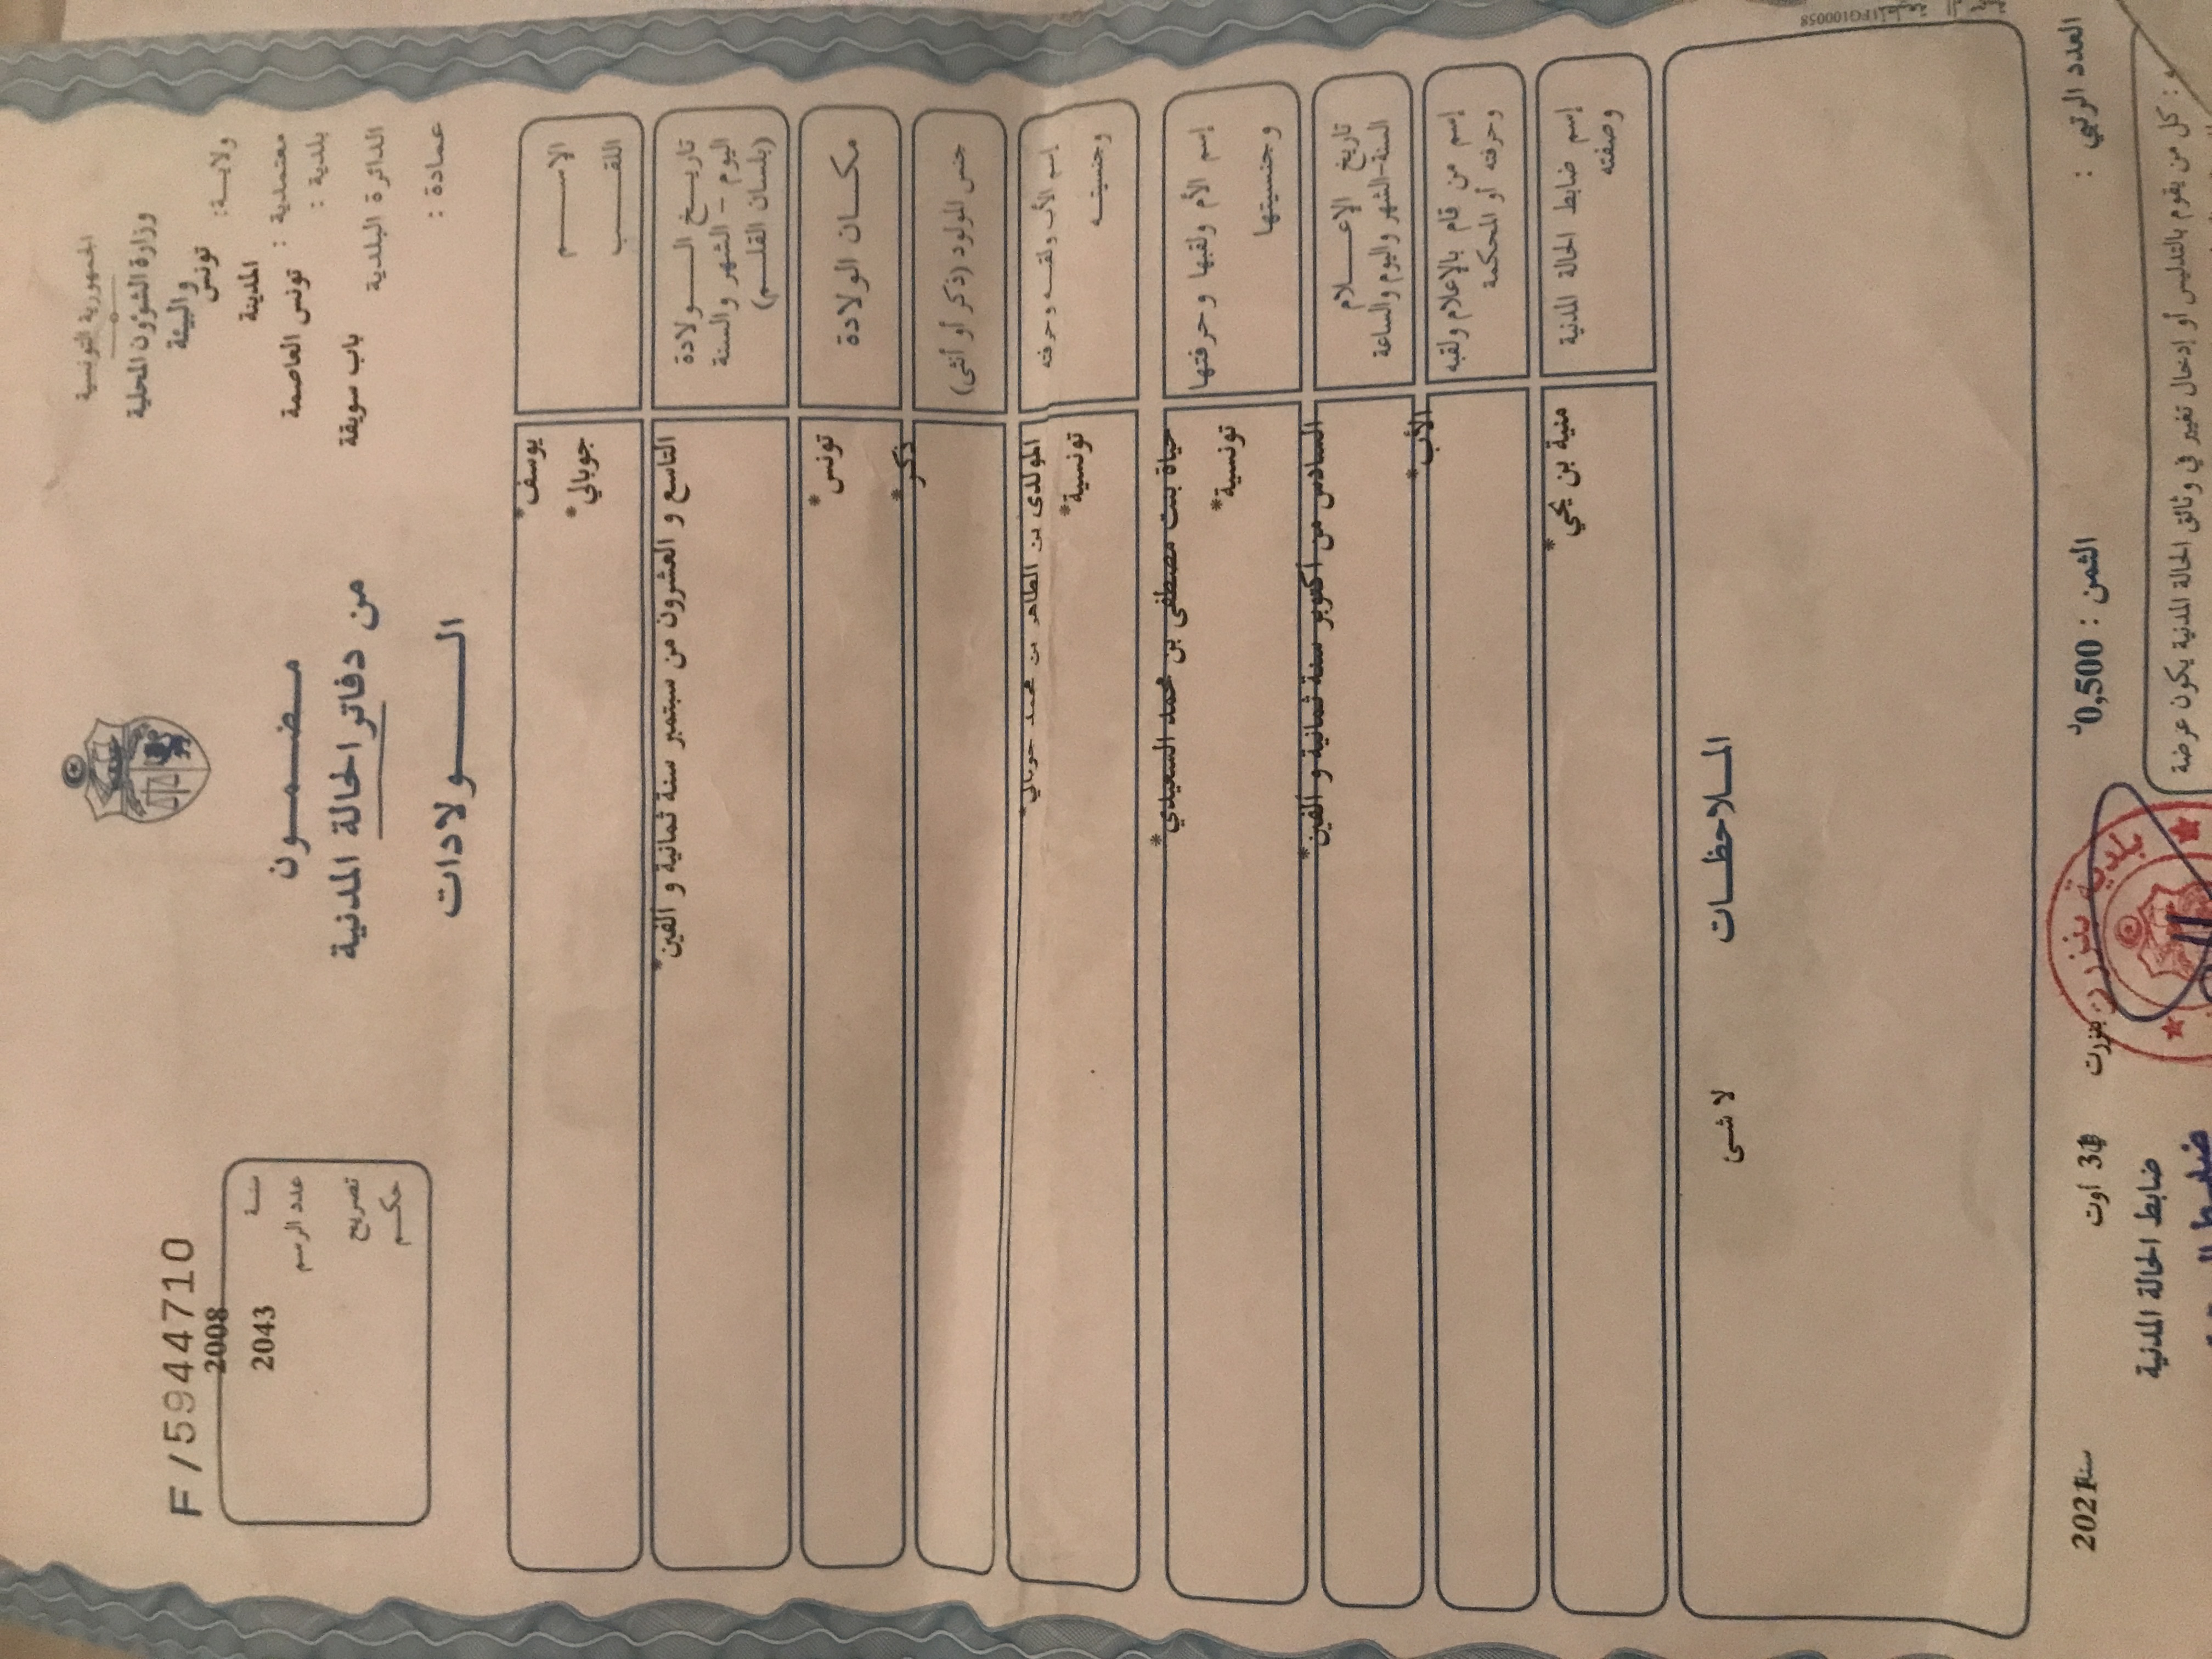 الجمهورية التونسية
وزارة الشؤون المحلية
والبيئة
ولاية: تونس
المدينة
معتمدية :
بلدية : تونس العاصمة
الدائرة البلدية باب سويقة
عمادة :
مضمون
من دفاتر الحالة المدنية
الولادات
F/5944710
2008
سنة
2043
عدد الرسم
تصريح
حكم
الاسم يوسف*
اللقب جوبالي*
تاريخ الولادة التاسع و العشرون من سبتمبر سنة ثمانية و ألفين*
اليوم - الشهر والسنة
(بلسان القلم)
مكان الولادة تونس*
جنس المولود (ذكر أو أنثى) ذكر*
إسم الأب ولقبه وحرفته المولدى بن الطاهر بن محمد جوبالي*
وجنسيته تونسية*
إسم الأم ولقبها وحرفتها حياة بنت مصطفى بن محمد السعيدي*
وجنسيتها تونسية*
تاريخ الإعلام السادس من أكتوبر سنة ثمانية و ألفين*
السنة-الشهر واليوم والساعة
إسم من قام بالإعلام ولقبه الأب*
وحرفته أو المحكمة
إسم ضابط الحالة المدنية منية بن يحي*
وصفته
الملاحظات
لا شئ
11FG100058
العدد الرتبي :
الثمن : 0,500د
بنزرت
أوت
سنة 2021
ضابط الحالة المدنية
كل من يقوم بالتدليس أو إدخال تغيير في وثائق الحالة المدنية يكون عرضة
بلدية بنزرت